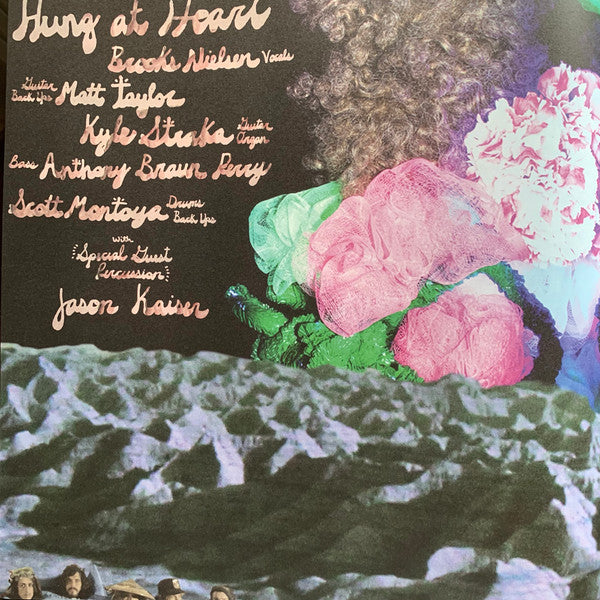 Hung at Heart
Brooks Nielsen Vocals
Guitar
Back Ups Matt Taylor
Kyle Straka Guitar
Organ
Bass Anthony Braun Perry
Scott Montoya Drums
Back Ups
with
Special Guest
Percussion
Jason Kaiser